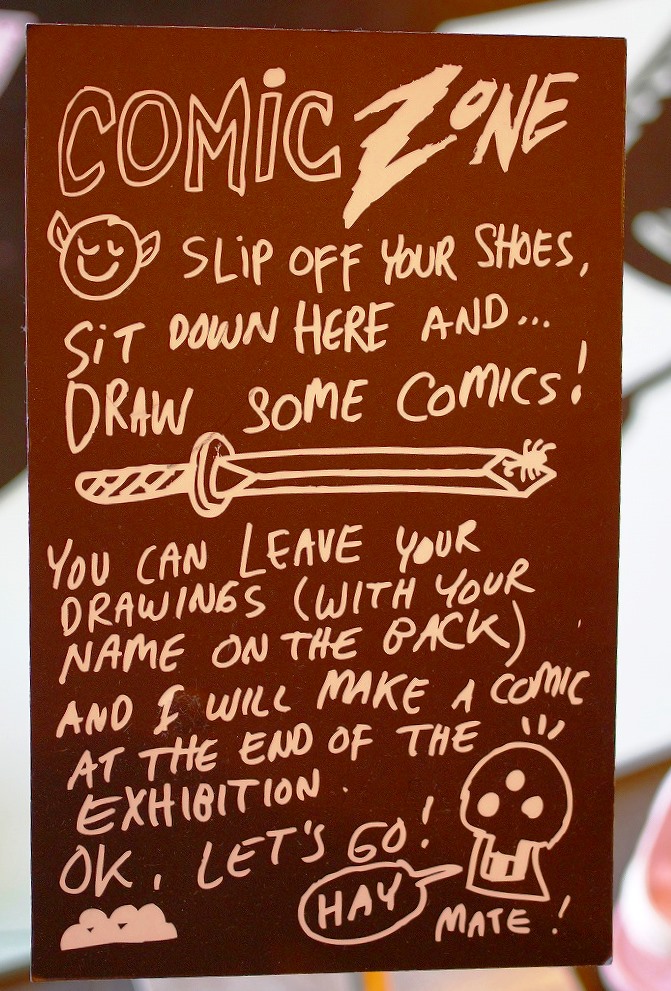 COMiC ZONE
SLiP OFF YOUR SHOES,
SiT DOWN HERE AND...
DRAW SOME COMiCS!
YOU CAN LEAVE YOUR
DRAWINGS (WITH YOUR
NAME ON THE BACK)
AND I WILL MAKE A COMIC
AT THE END OF THE
EXHIBITION.
OK, LET'S GO!
HAY
MATE!